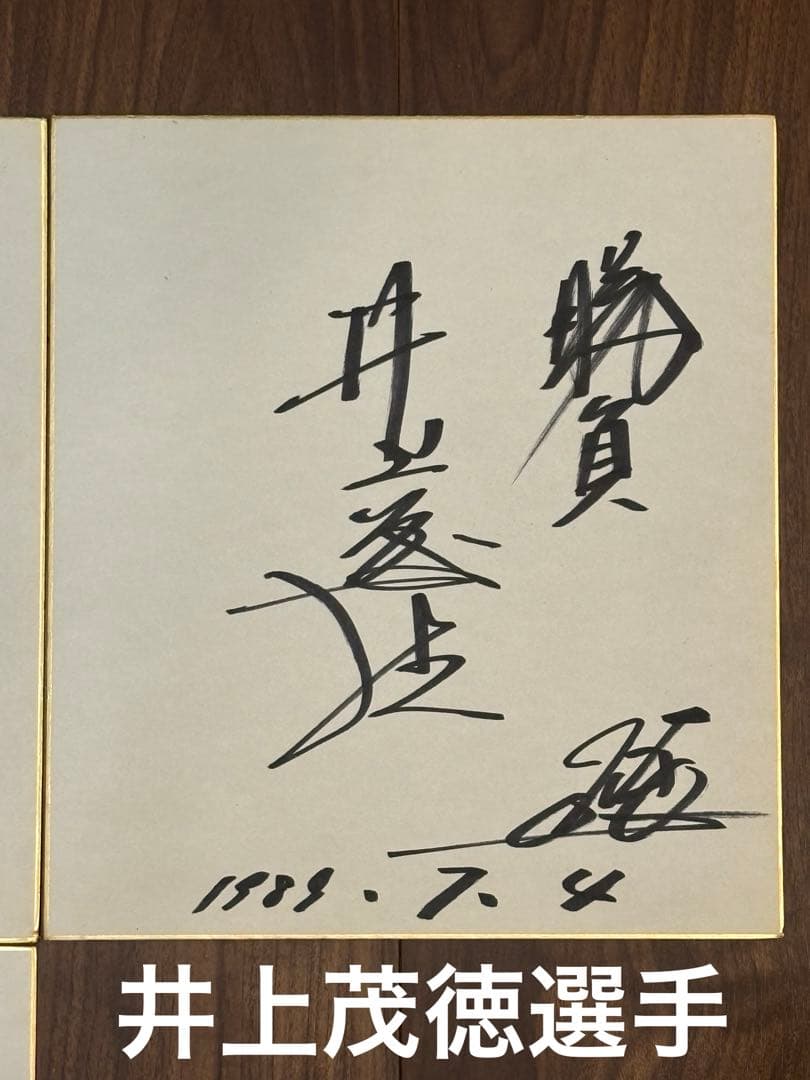 勝負
井上茂徳
1989.7.4
井上茂徳選手